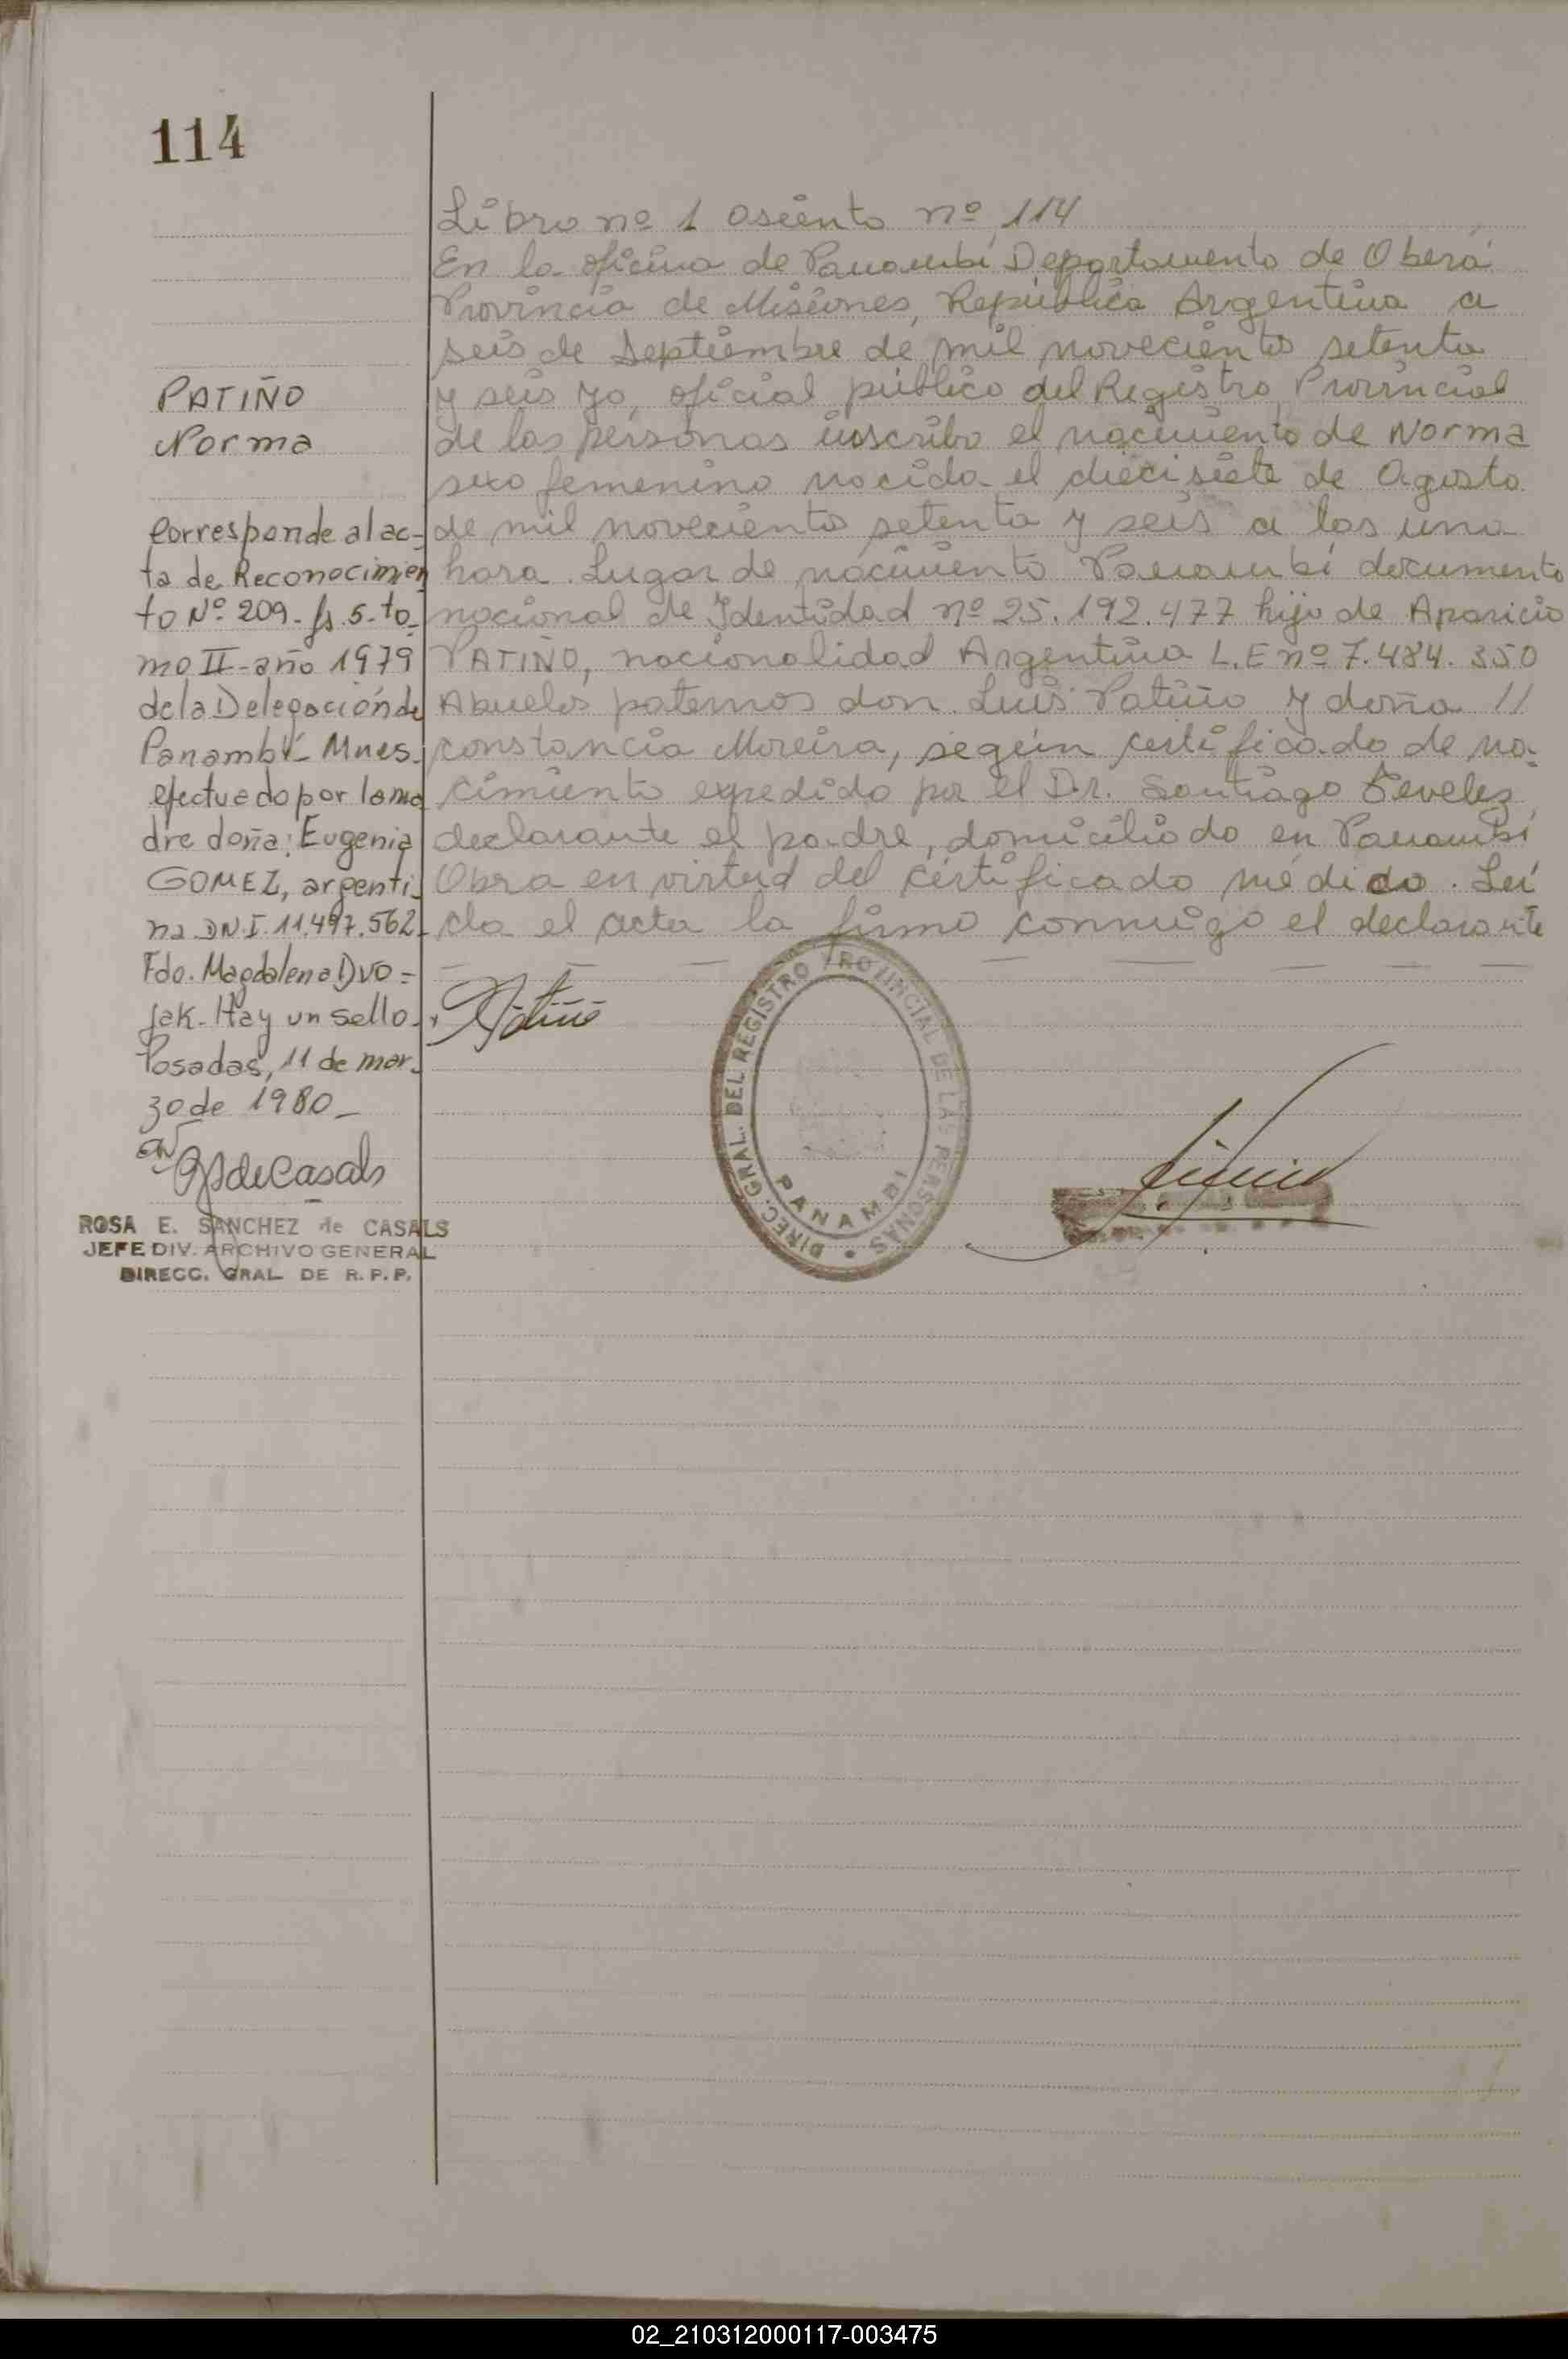 114
Libro nº 1 asiento nº 114
En la oficina de Panambí Departamento de Oberá
Provincia de Misiones, República Argentina a
seis de Septiembre de mil noveciento setenta
y seis yo, oficial público del Registro Provincial
de las personas inscribo el nacimiento de Norma
sexo femenino nacida el diecisiete de Agosto
de mil noveciento setenta y seis a las una
hora. Lugar de nacimiento Panambí documento
nacional de Identidad nº 25.192.477 hijo de Aparicio
PATIÑO, nacionalidad Argentina L.E nº 7.484.350
Abuelos paternos don Luis Patiño y doña //
constancia Moreira, según certificado de na-
cimiento expedido por el Dr. Santiago Tevelez
declarante el padre, domiciliado en Panambí
Obra en virtud del certificado médico. Leí
da el acta la firma conmigo el declarante
Patiño
PATIÑO
Norma
Corresponde al ac-
ta de Reconocimien
to Nº 209- fs 5-to-
mo II-año 1979
de la Delegación de
Panambí- Mnes.
efectuado por la ma
dre doña: Eugenia
GOMEZ, argenti-
na D.N.I. 11.497.562-
Fdo. Magdalena Dvo=
jak- Hay un sello-
Posadas, 11 de mar-
zo de 1980-
RSdeCasals
ROSA E. SANCHEZ de CASALS
JEFE DIV. ARCHIVO GENERAL
DIRECC. GRAL DE R.P.P.
DIREC. GRAL. DEL REGISTRO PROVINCIAL DE LAS PERSONAS
PANAMBI
02_210312000117-003475